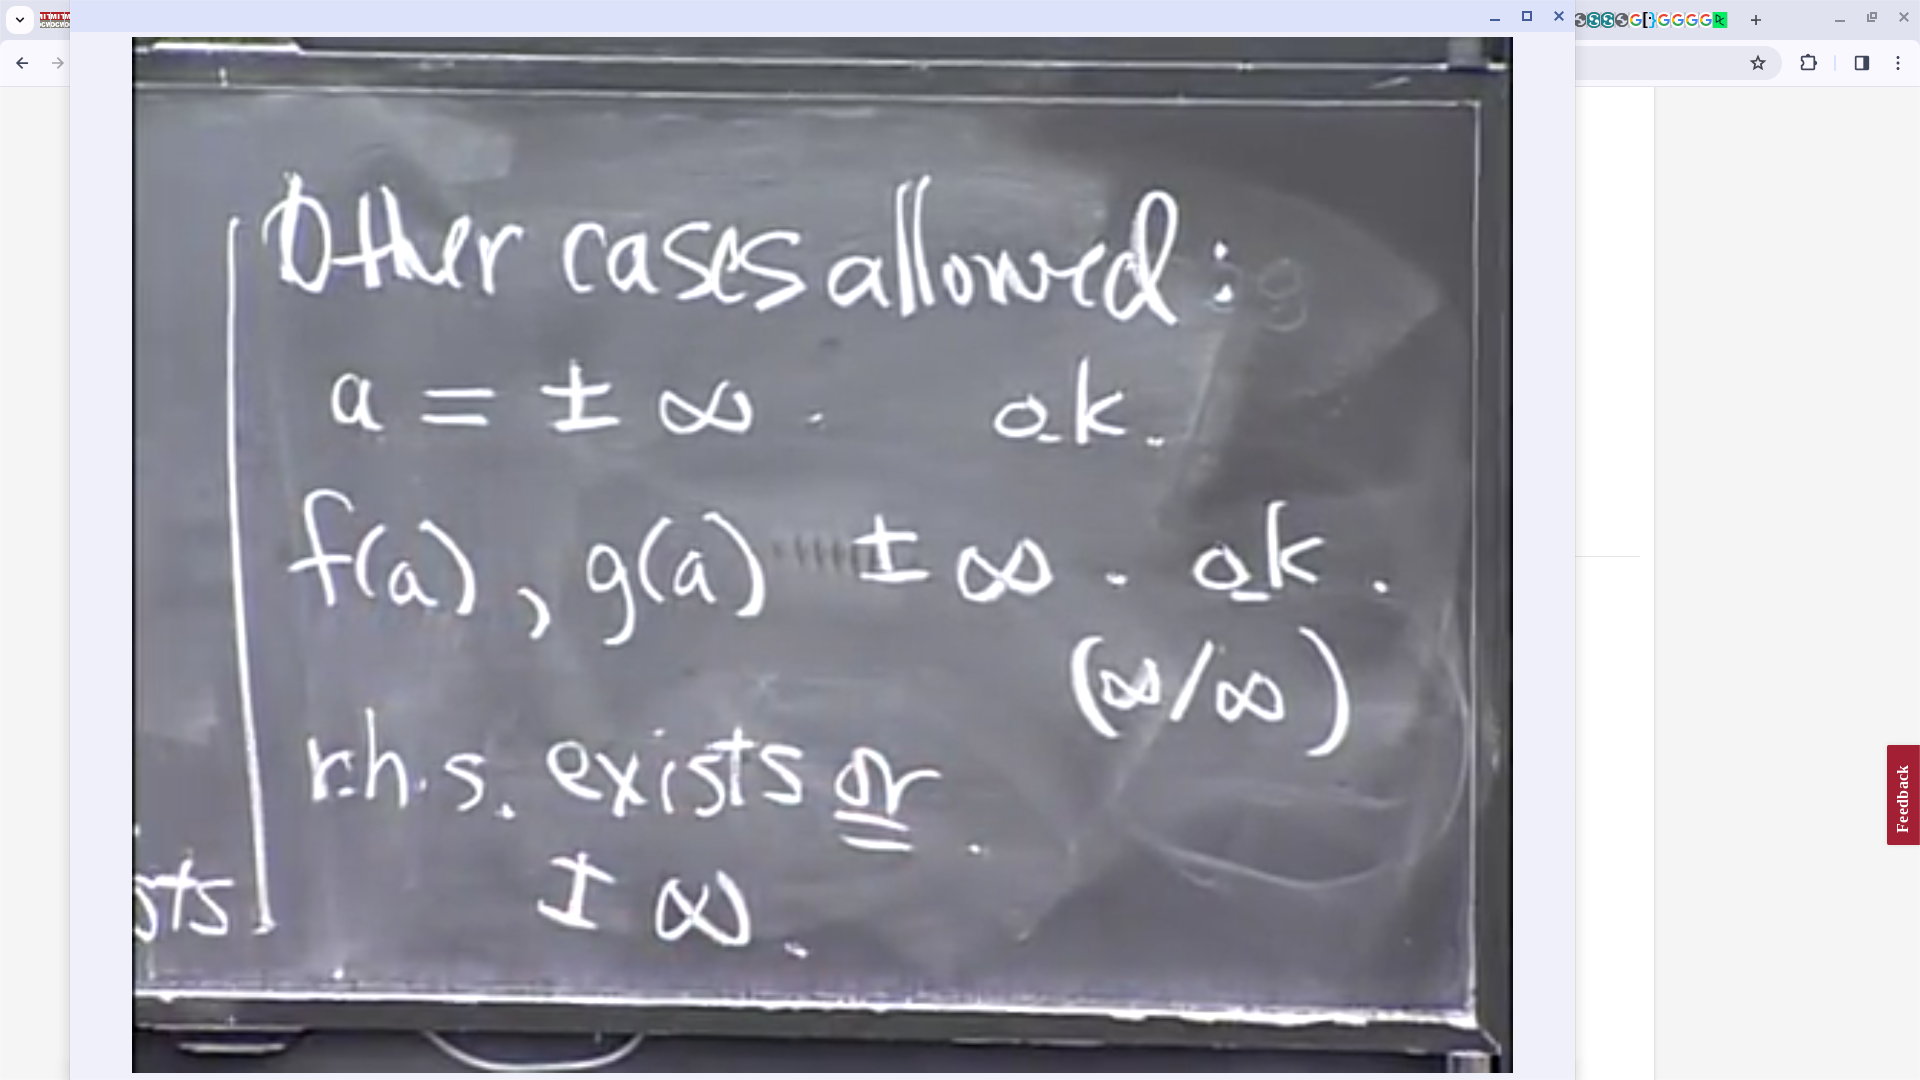 Other cases allowed:
a = ± ∞. o.k.
f(a), g(a) ± ∞. o.k.
(∞/∞)
r.h.s. exists or
± ∞.
sts
Feedback